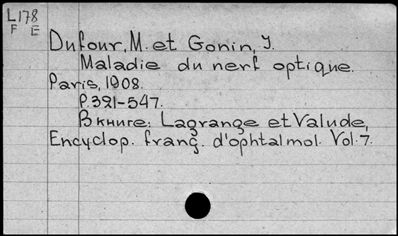 L178
F E
Dufour, M. et Gonin, J.
Maladie du nerf optique.
Paris, 1908.
P.321-547.
В книге: Lagrange et Valude,
Encyclop. franç. d'ophtalmol. Vol.7.